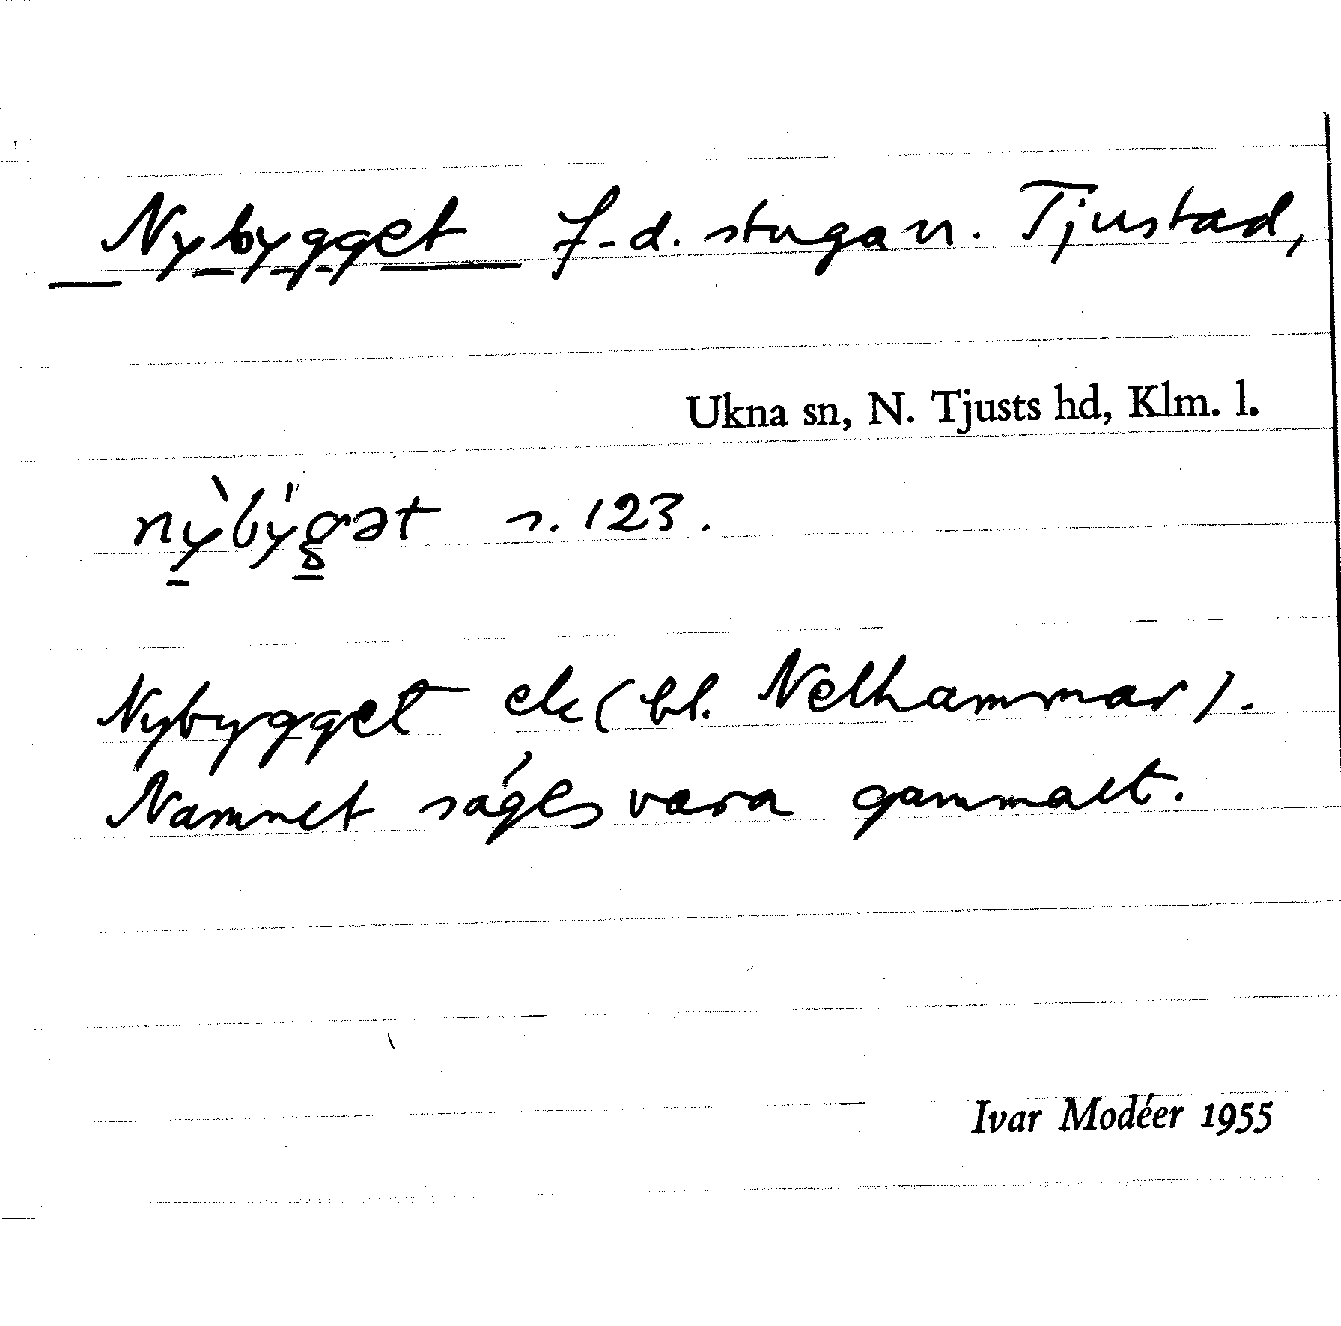 Nybygget f.d. stuga n. Tjustad,
Ukna sn, N. Tjusts hd, Klm. l.
nỳbÿgət s. 123.
Nybygget ek (bl. Nelhammar).
Namnet säges vara gammalt.
Ivar Modéer 1955